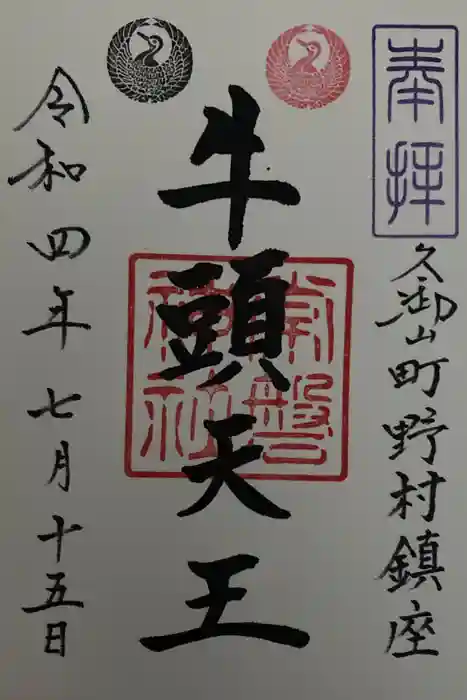 奉拝
久御山町野村鎮座
牛頭天王
常盤神社
令和四年七月十五日